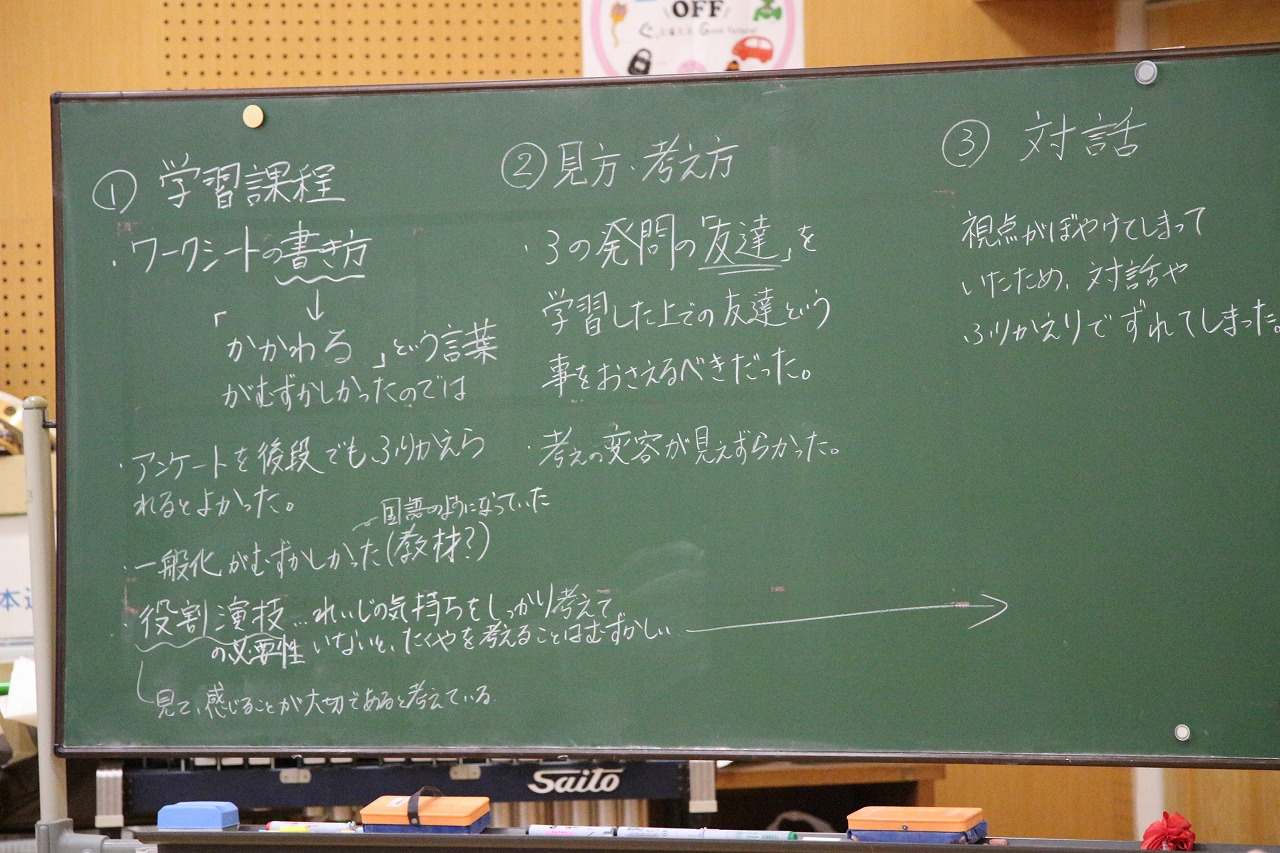 OFF
① 学習課程
・ワークシートの書き方
↓
「かかわる」という言葉
がむずかしかったのでは
・アンケートを後段でもふりかえら
れるとよかった。
国語のようになっていた
・一般化がむずかしかった(教材?)
役割演技…れいじの気持ちをしっかり考えて
の必要性 いないと、たくやを考えることはむずかしい
見て、感じることが大切であると考えている
② 見方・考え方
・3の発問の「友達」を
学習した上での友達という
事をおさえるべきだった。
・考えの変容が見えずらかった。
③ 対話
視点がぼやけてしまって
いたため、対話や
ふりかえりでずれてしまった。
Saito